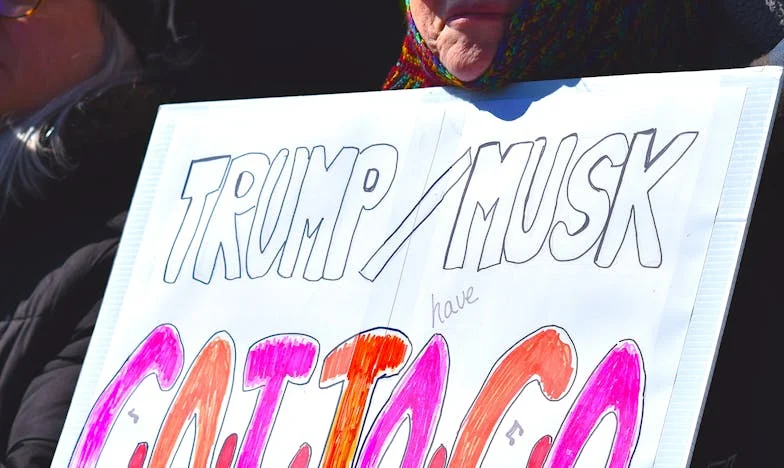 TRUMP/MUSK
have
GOT TO GO